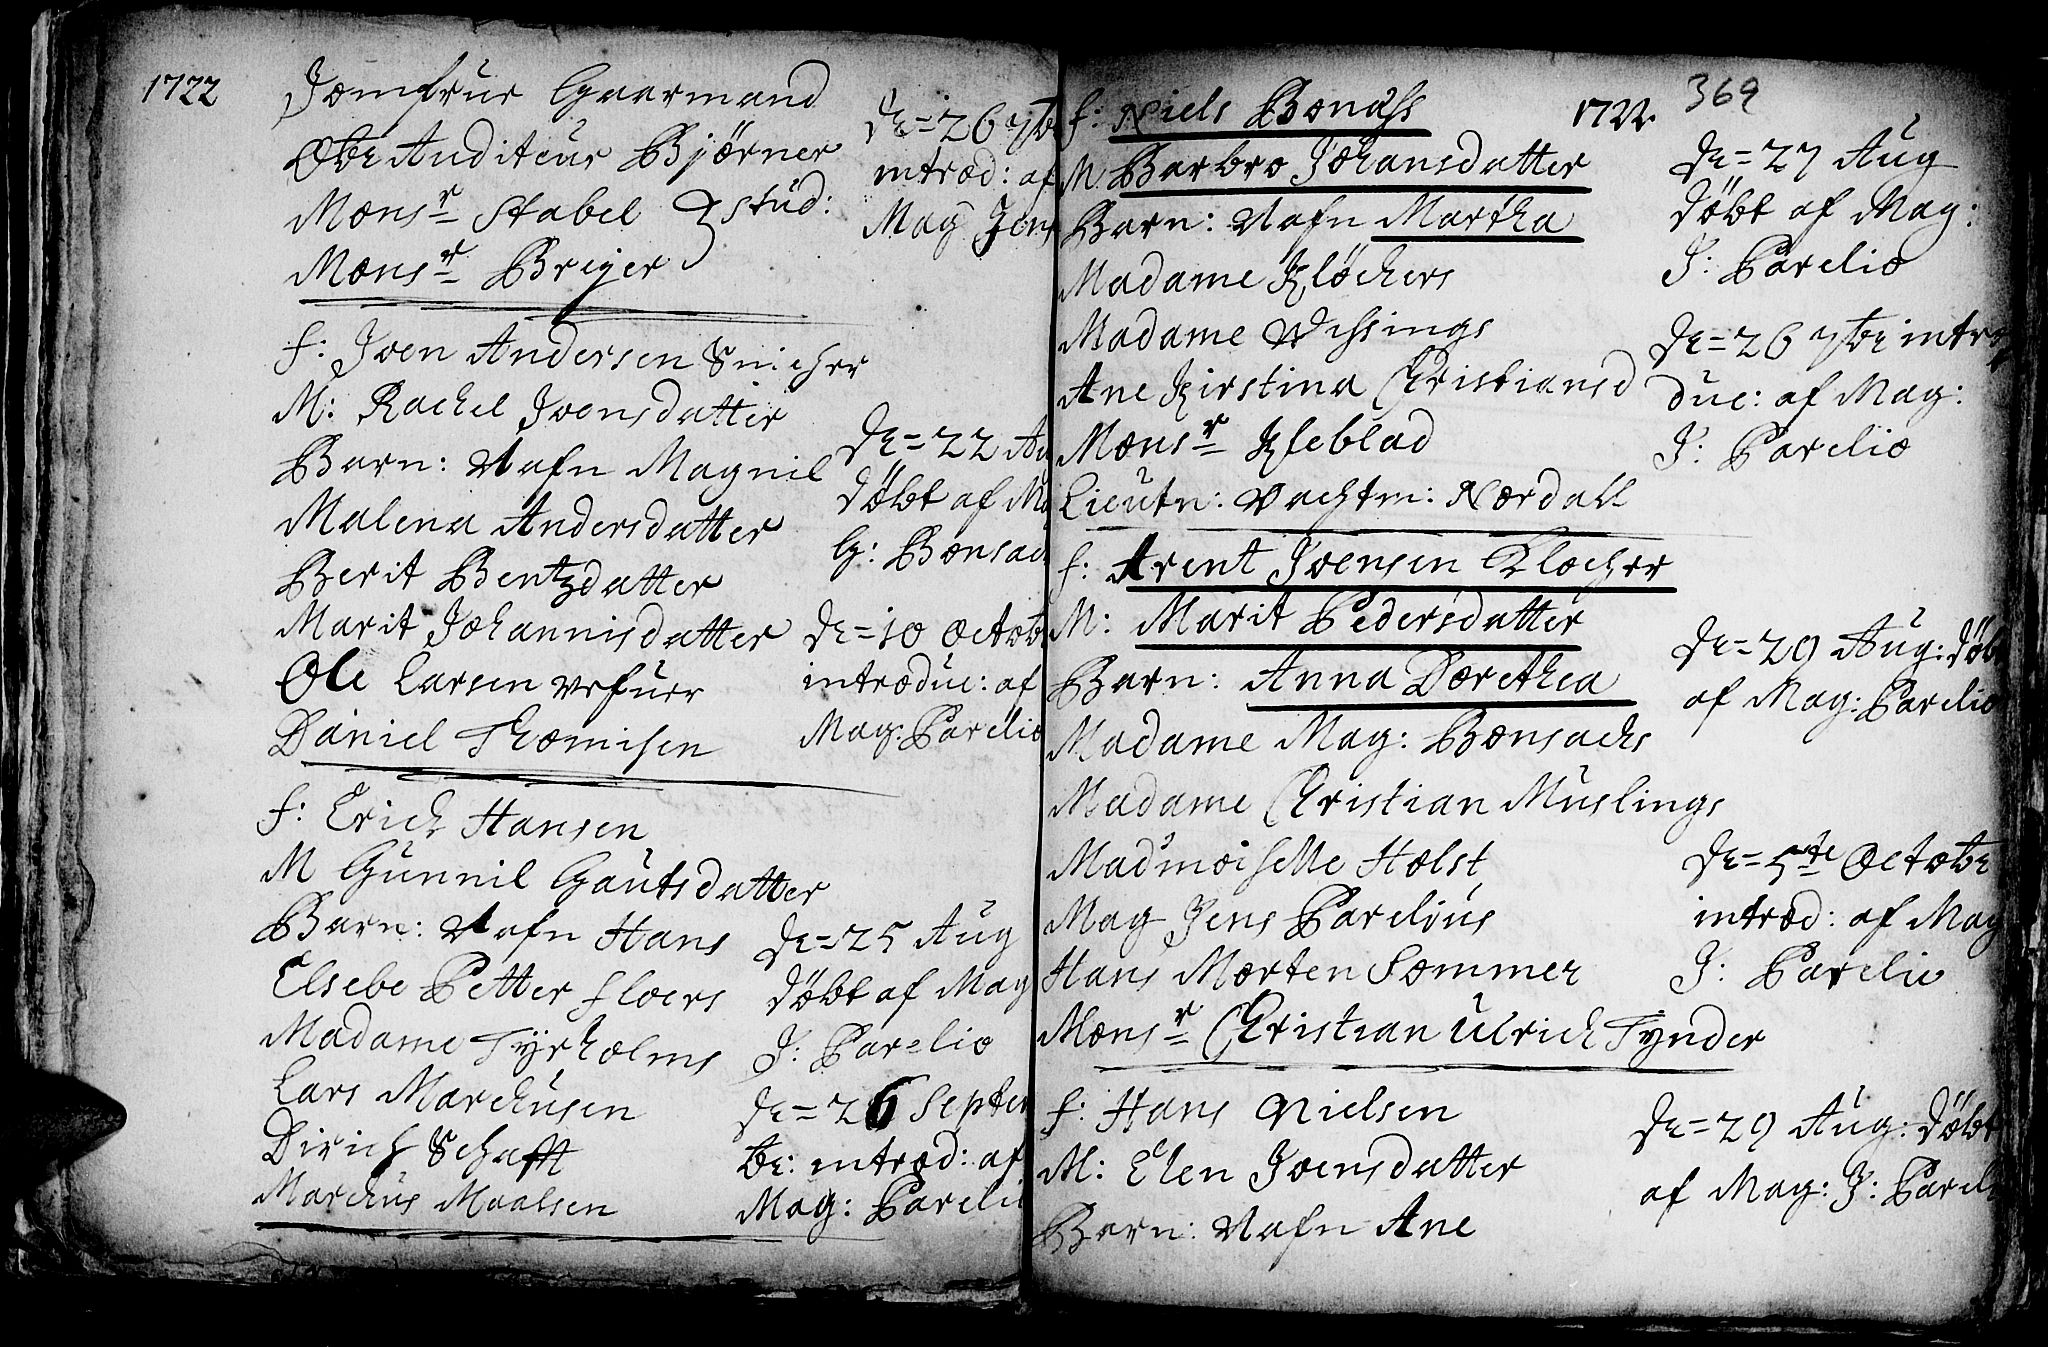 1722
Jomfrue Gaarmand
Obr Auditeur Bjørner
Monsr Stabel } stud:
Monsr Breyer
De= 26 7br
introd: af
Mag Jens
f: Iven Andersen Snicher
M: Rachel Ivensdatter
Barn: Nafn Magnil
Malena Andersdatter
Berit Bentzdatter
Marit Johannisdatter
Ole Larsen
Daniel Thomisen
De= 22 Au
døbt af Ma
G: Bonsach
De= 10 Octobr
introduc: af
Mag: Parelio
f: Erich Hansen
M Gunnil Gautsdatter
Barn: Nafn Hans
Elsebe Petter Floers
Madame Tyrholms
Lars Marchusen
Dirich Schafft
Marchus Maalsen
De= 25 Aug
døbt af Mag
J: Parelio
De= 26 Septem
br: introd: af
Mag: Pareli
1722.
369
f: Niels Bonass
M. Barbro Johansdatter
Barn: Nafn Martha
Madame Kløchers
Madame Wissings
Ane Kirstina Christiansd
Monsr Kleblad
Lieutn: Vachtm: Nordall
De= 27 Aug
døbt af Mag:
J: Parelio
De= 26 7br intro
duc: af Mag:
J: Parelio
f: Arent Ivensen Klocher
M: Marit Pedersdatter
Barn: Anna Dorethea
Madame Mag: Bonsachs
Madame Christian Muslings
Madmoiselle Holst
Mag Jens Parelius
Hans Morten Sommer
Monsr Christian Ulrich Tynder
De= 29 Aug: døbt
af Mag: Parelio
De= 5te Octobr
introd: af Mag
J: Parelio
f: Hans Nielsen
M: Elen Ivensdatter
Barn: Nafn Ane
De= 29 Aug: døbt
af Mag: J: Pareli